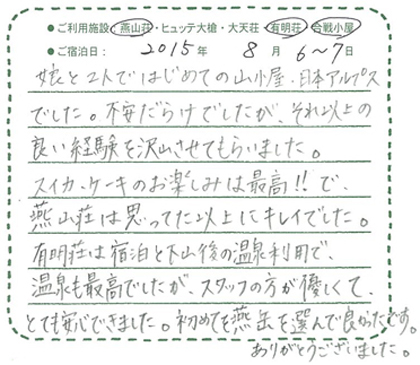 ●ご利用施設 燕山荘・ヒュッテ大槍・大天荘・有明荘・合戦小屋
●ご宿泊日： 2015年 8月 6〜7日
娘と2人ではじめての山小屋・日本アルプス
でした。不安だらけでしたが、それ以上の
良い経験を沢山させてもらいました。
スイカ、ケーキのお楽しみは最高!!で、
燕山荘は思ってた以上にキレイでした。
有明荘は宿泊と下山後の温泉利用で、
温泉も最高でしたが、スタッフの方が優しくて、
とても安心できました。初めてを燕岳を選んで良かったです。
ありがとうございました。